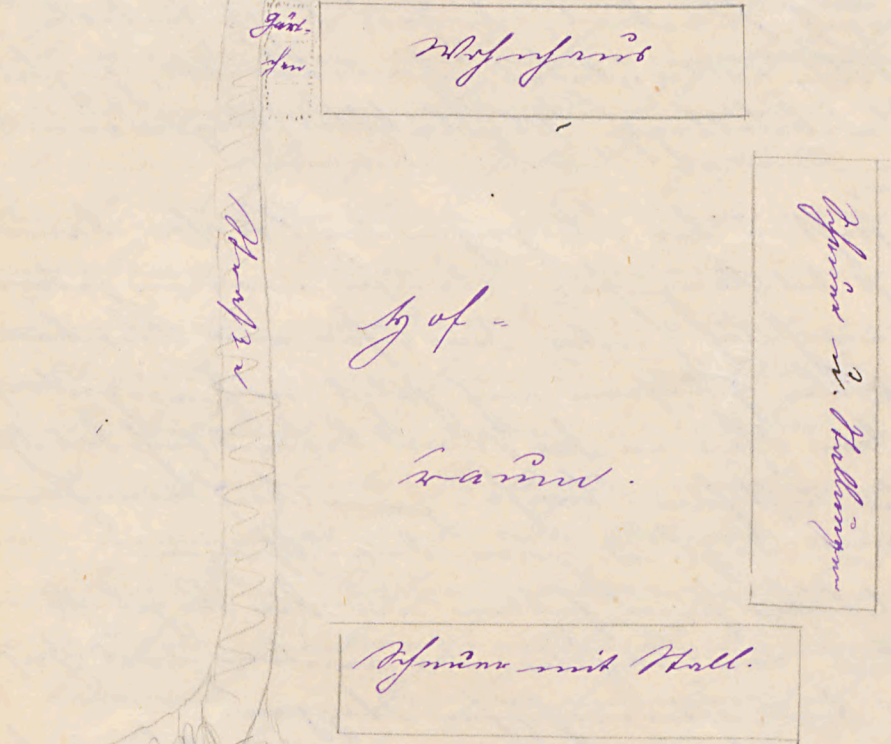 Gärt-
chen
Wohnhaus
Straße
Hof-
raum.
Scheuer u. Stallungen
Scheuer mit Stall.